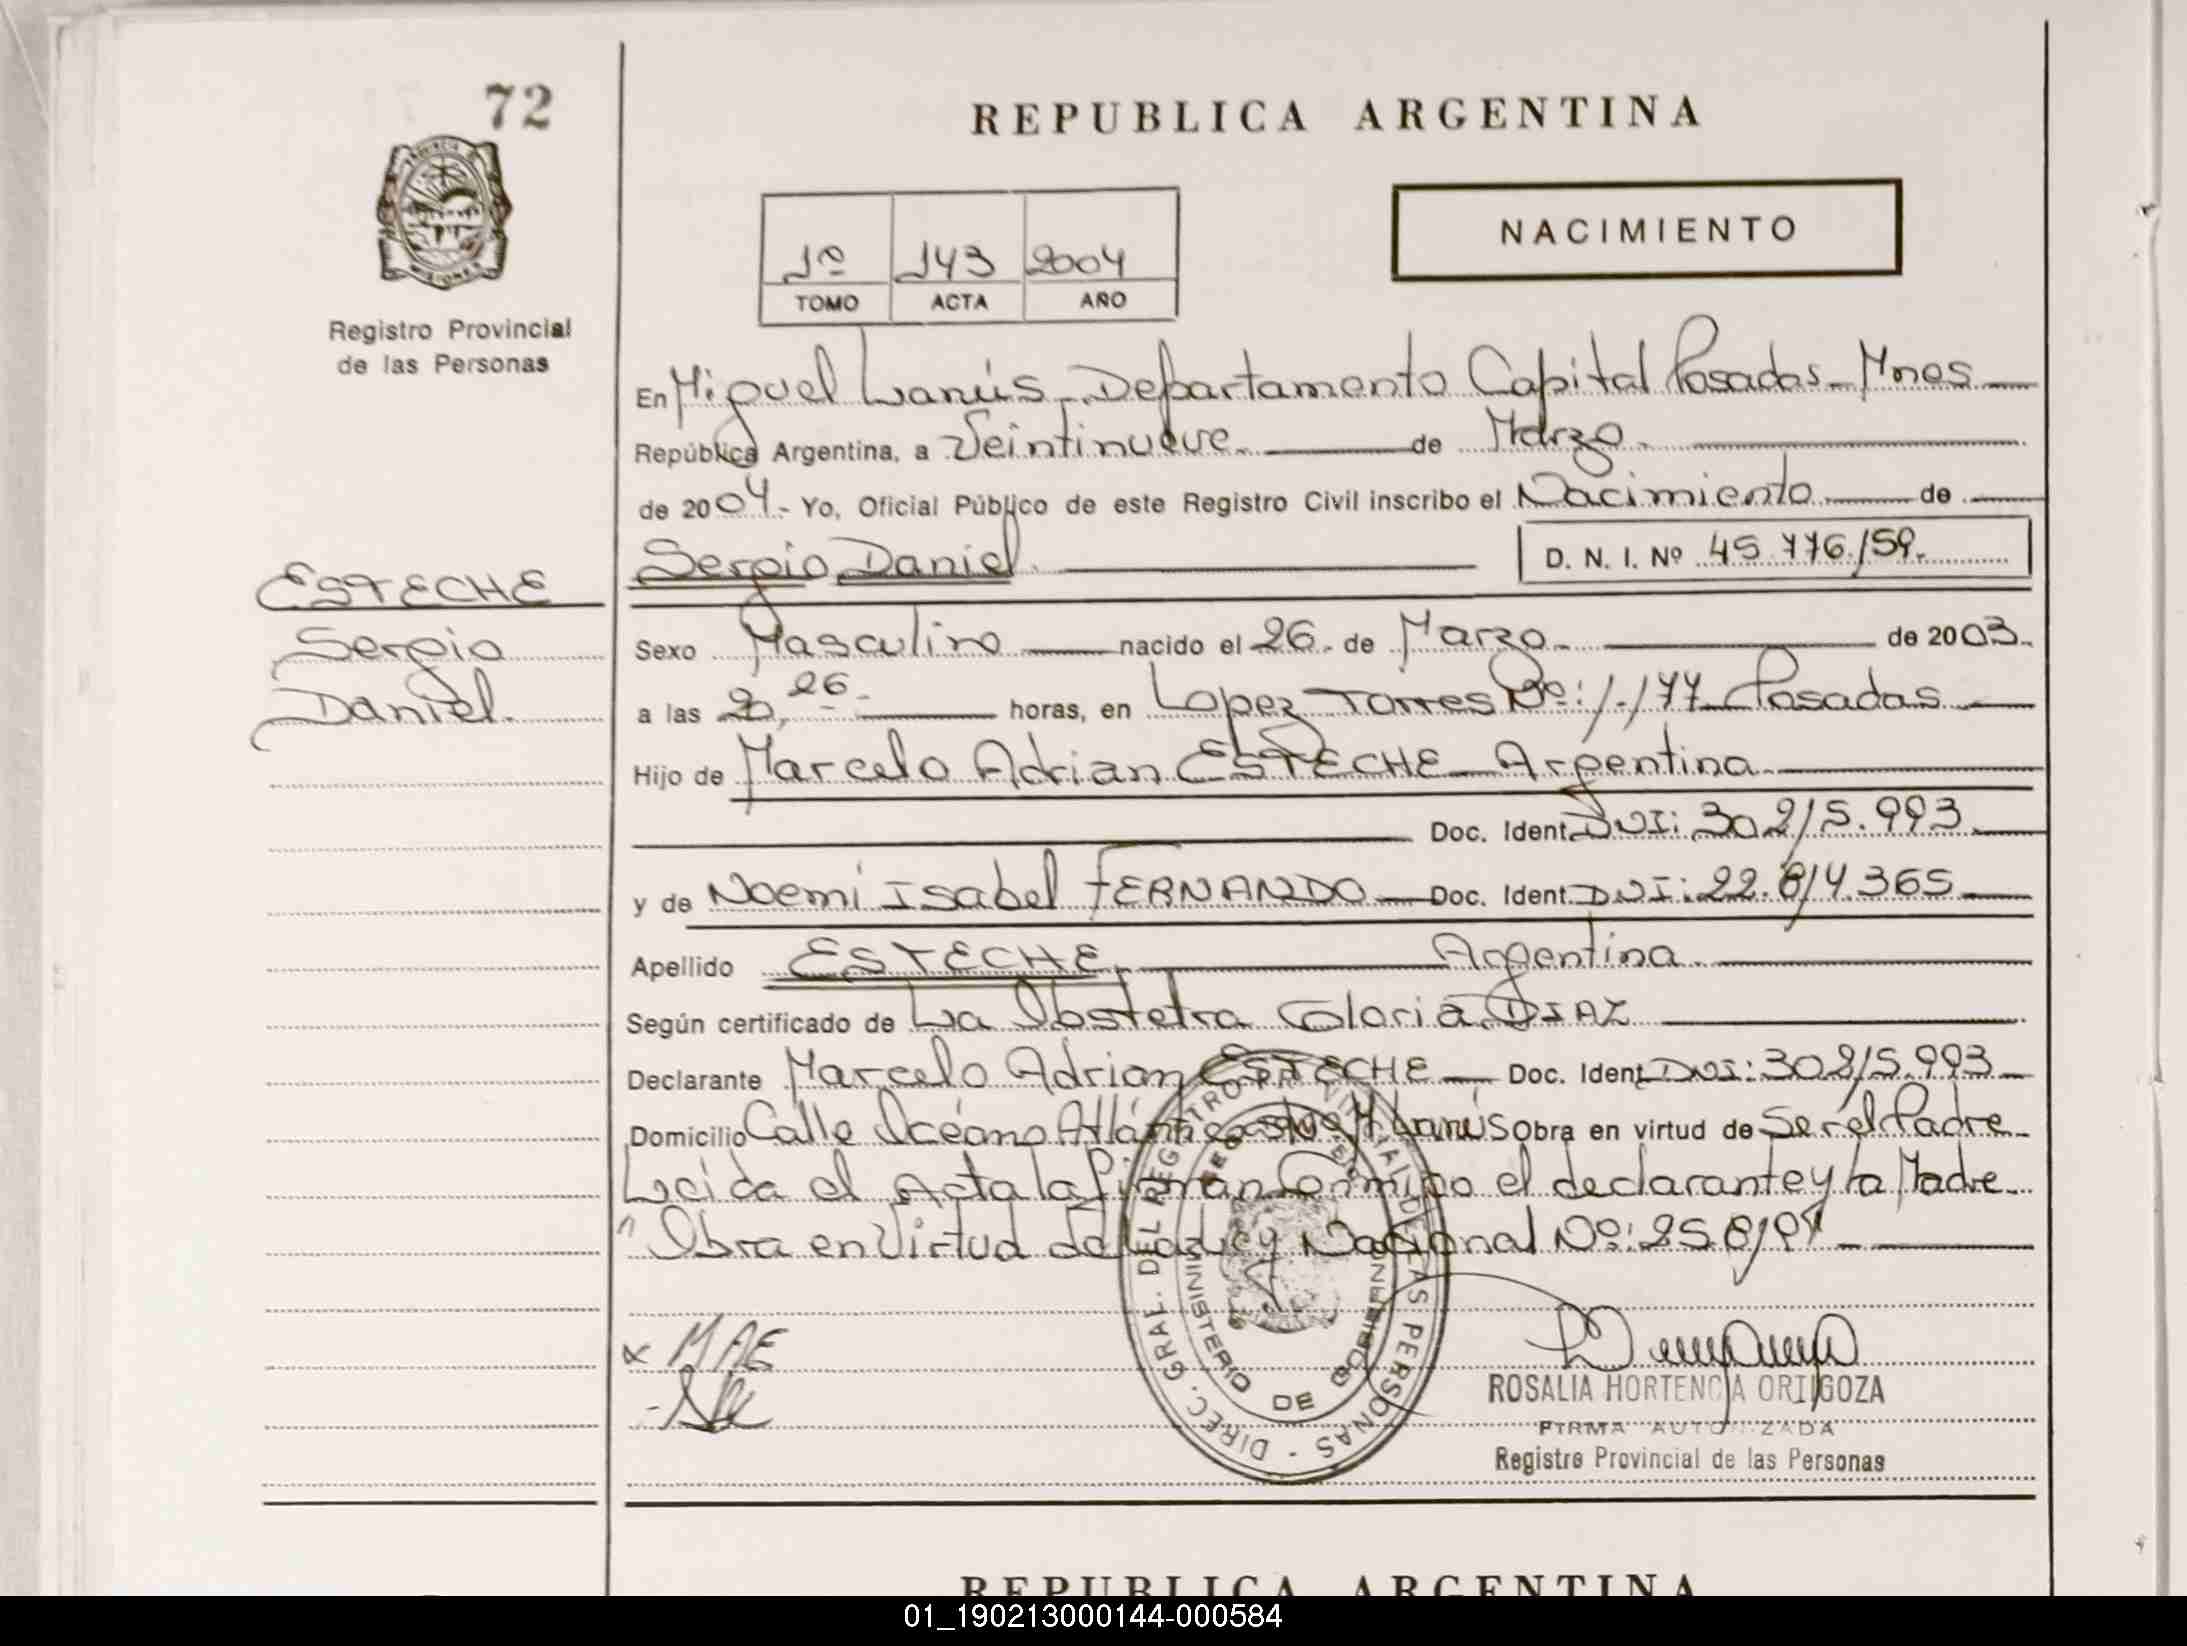 72
REPUBLICA ARGENTINA
NACIMIENTO
1º 143 2004
TOMO ACTA AÑO
Registro Provincial
de las Personas
En Miguel Lanús - Departamento Capital Posadas - Mnes
República Argentina, a Veintinueve de Marzo
de 2004.- Yo, Oficial Público de este Registro Civil inscribo el Nacimiento de
Sergio Daniel. D. N. I. Nº 45.776.159.
ESTECHE
Sergio
Daniel.
Sexo Masculino nacido el 26 de Marzo de 2003.
a las horas, en Lopez Torres Nº: 1.177 Posadas
Hijo de Marcelo Adrian ESTECHE Argentina
Doc. Ident. DNI: 30.215.993
y de Noemi Isabel FERNANDO Doc. Ident. DNI: 22.814.365
Apellido ESTECHE, Argentina
Según certificado de La Obstetra Gloria DIAZ
Declarante Marcelo Adrian ESTECHE Doc. Ident. DNI: 30.215.993
Domicilio Calle Océano Atlántico Lanús obra en virtud de Ser el Padre
Leida el Acta la firman Conmigo el declarante y la Madre
"Obra en Virtud de la Ley Nacional Nº: 25.819"
MAE
DIREC. GRAL. DEL REGISTRO PROVINCIAL DE LAS PERSONAS
MINISTERIO DE GOBIERNO
ROSALIA HORTENCIA ORTIGOZA
FIRMA AUTORIZADA
Registro Provincial de las Personas
REPUBLICA ARGENTINA
01_190213000144-000584